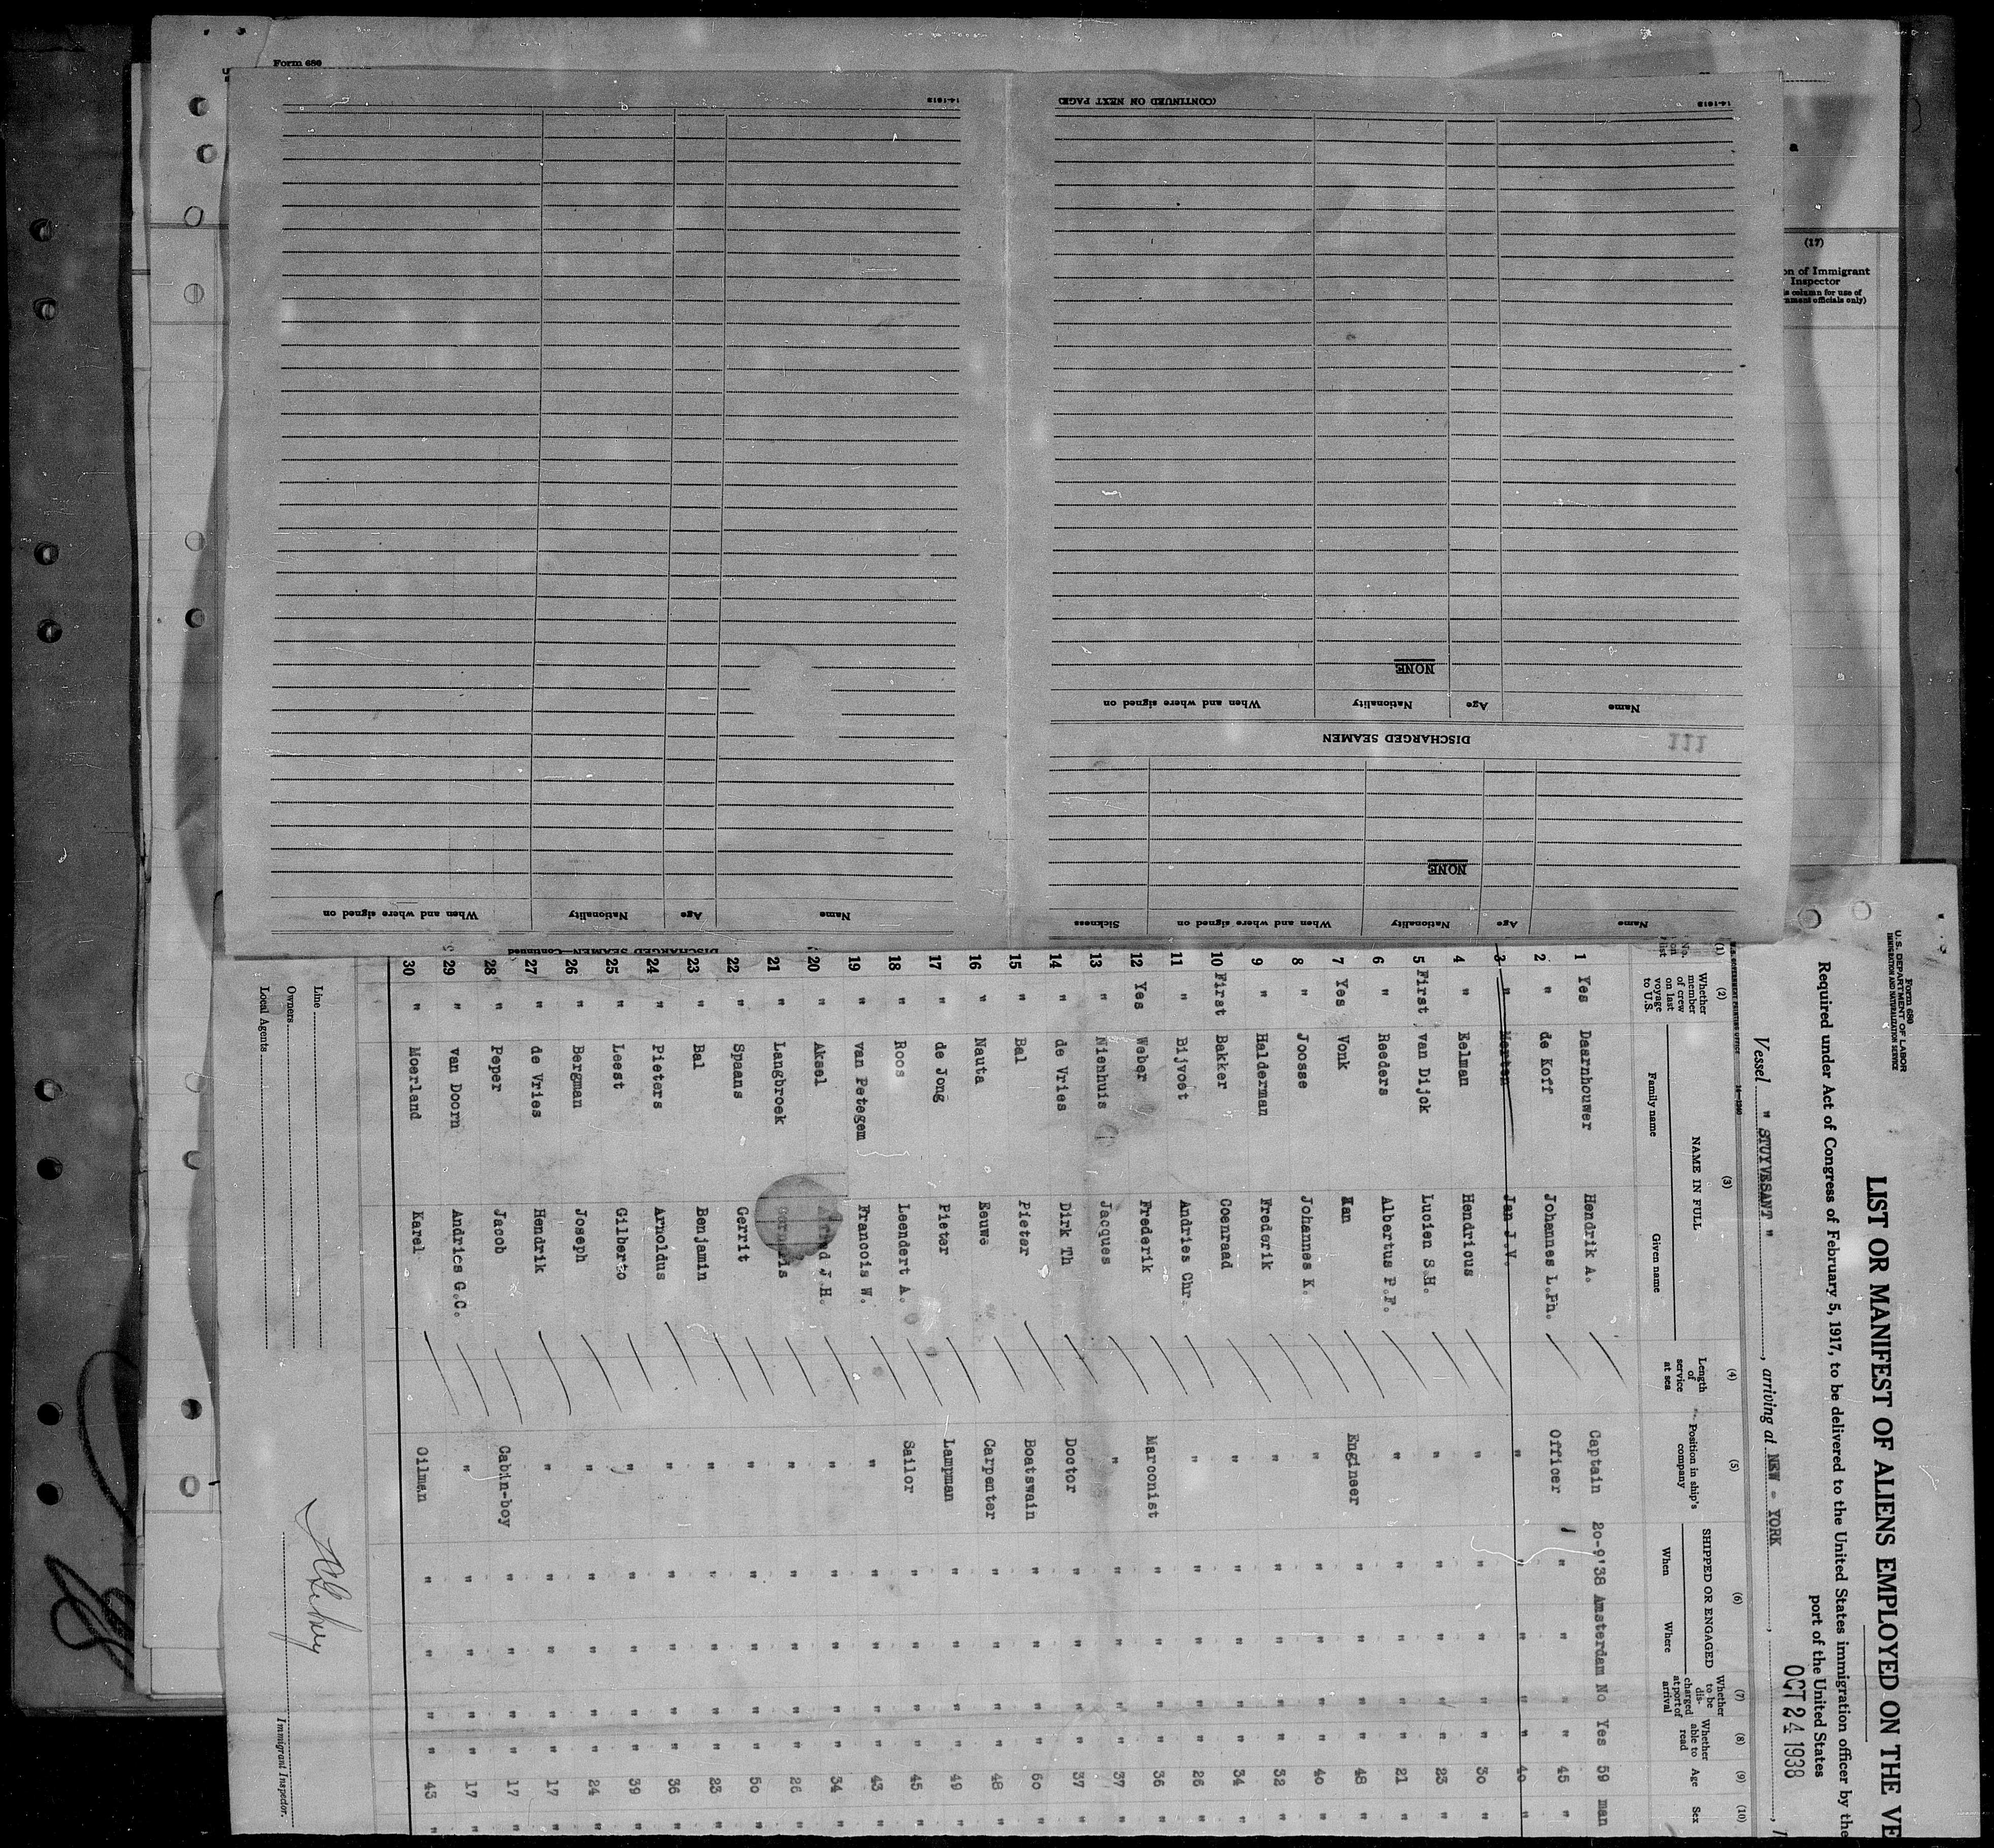 Form 680
(17)
on of Immigrant
Inspector
is column for use of
nment officials only)
14-1618
(CONTINUED ON NEXT PAGE)
14-1618
NONE
Name Age Nationality When and where signed on
DISCHARGED SEAMEN
111
NONE
Name Age Nationality When and where signed on Sickness
Name Age Nationality When and where signed on
DISCHARGED SEAMEN—Continued
Form 680
U. S. DEPARTMENT OF LABOR
IMMIGRATION AND NATURALIZATION SERVICE
LIST OR MANIFEST OF ALIENS EMPLOYED ON THE VE
Required under Act of Congress of February 5, 1917, to be delivered to the United States immigration officer by the
port of the United States
Vessel " STUYVESANT ", arriving at NEW - YORK, OCT 24 1938, 1
(1) (2) (3) (4) (5) (6) (7) (8) (9) (10)
No. on list
Whether member of crew on last voyage to U.S.
NAME IN FULL
Family name Given name
Length of service at sea
Position in ship's company
SHIPPED OR ENGAGED
When Where
Whether to be discharged at port of arrival
Whether able to read
Age
Sex
1 Yes Daarnhouwer Hendrik A. Captain 20-9'38 Amsterdam No Yes 59 man
2 " de Koff Johannes L.Ph. Officer " " " " 45 "
3 " Merten Jan J.V. " " " " " 40 "
4 " Kelman Hendricus " " " " " 30 "
5 First van Dijck Lucien S.H. " " " " " 23 "
6 " Reeders Albertus P.F. " " " " " 21 "
7 Yes Vonk Man Engineer " " " " 48 "
8 " Joosse Johannes K. " " " " " 40 "
9 " Halderman Frederik " " " " " 32 "
10 First Bakker Coenraad " " " " " 34 "
11 " Bijvoet Andries Chr. " " " " " 26 "
12 Yes Weber Frederik Marconist " " " " 36 "
13 " Nienhuis Jacques " " " " " 37 "
14 " de Vries Dirk Th Doctor " " " " 37 "
15 " Bal Pieter Boatswain " " " " 60 "
16 " Nauta Eeuwe Carpenter " " " " 48 "
17 " de Jong Pieter Lampman " " " " 49 "
18 " Roos Leendert A. Sailor " " " " 45 "
19 " van Petegem Francois W. " " " " " 43 "
20 " Aksel J.H. " " " " " 34 "
21 " Langbroek Cornelis " " " " " 26 "
22 " Spaans Gerrit " " " " " 50 "
23 " Bal Benjamin " " " " " 23 "
24 " Pieters Arnoldus " " " " " 36 "
25 " Leest Gilberto " " " " " 39 "
26 " Bergman Joseph " " " " " 24 "
27 " de Vries Hendrik " " " " " 17 "
28 " Peper Jacob Cabin-boy " " " " 17 "
29 " van Doorn Andries G.C. " " " " " 17 "
30 " Moerland Karel Oilman " " " " 43 "
Line
Owners
Local Agents
Immigrant Inspector.